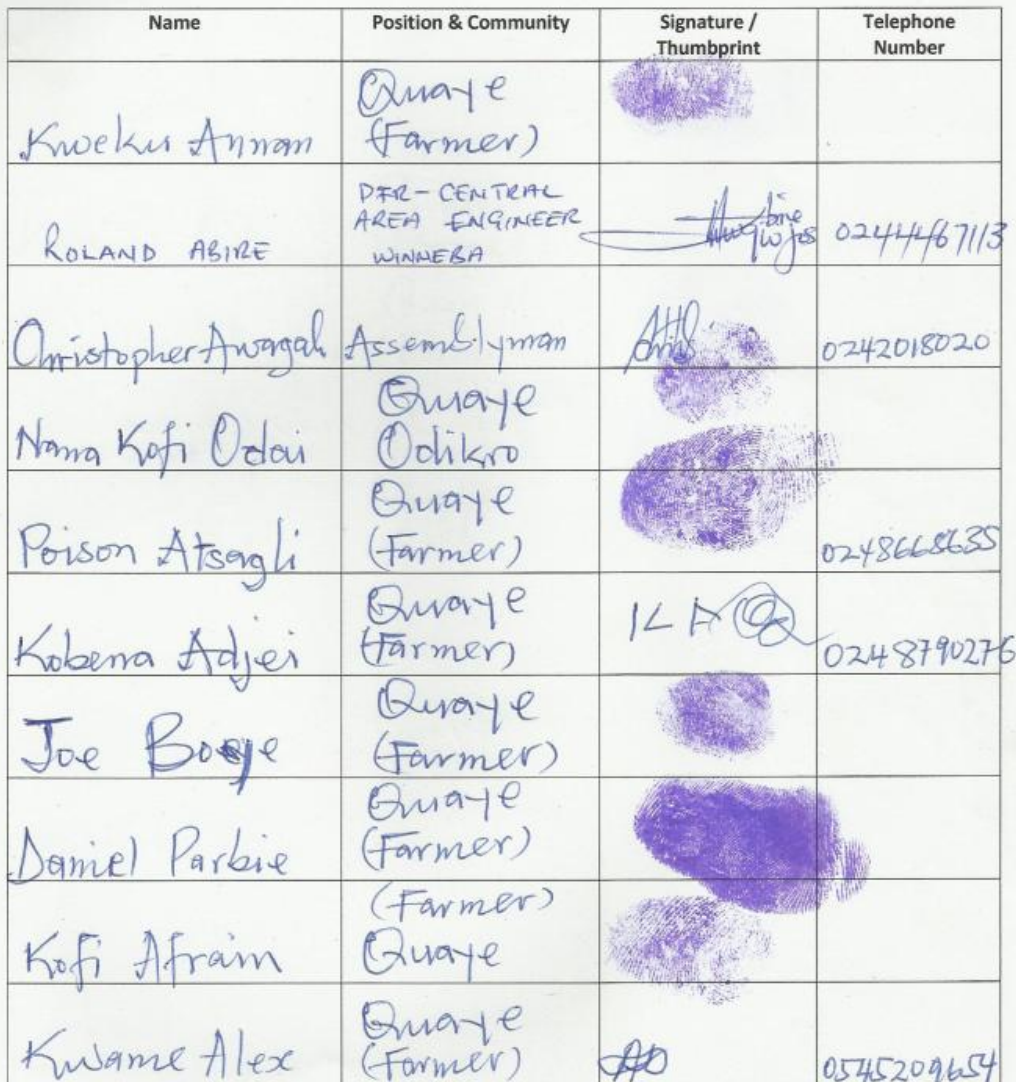 Name Position & Community Signature / Thumbprint Telephone Number
Kweku Annan Quaye (Farmer)
ROLAND ABIRE DFR-CENTRAL AREA ENGINEER WINNEBA 0244467113
Christopher Awagah Assemblyman 0242018020
Nana Kofi Odai Quaye Odikro
Poison Atsagli Quaye (Farmer) 0248668635
Kobena Adjei Quaye (Farmer) KA 0248790276
Joe Boye Quaye (Farmer)
Daniel Parbie Quaye (Farmer)
Kofi Afraim (Farmer) Quaye
Kwame Alex Quaye (Farmer) 0545209654